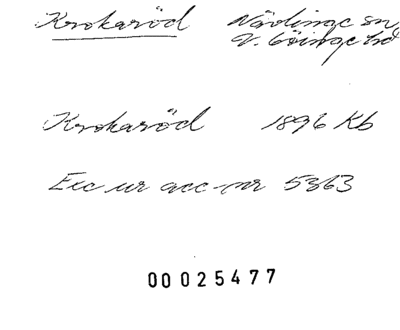 Krokaröd Nävlinge sn
V. Göinge hd
Krokaröd 1896 Kb
Exc ur acc-nr 5363
00025477